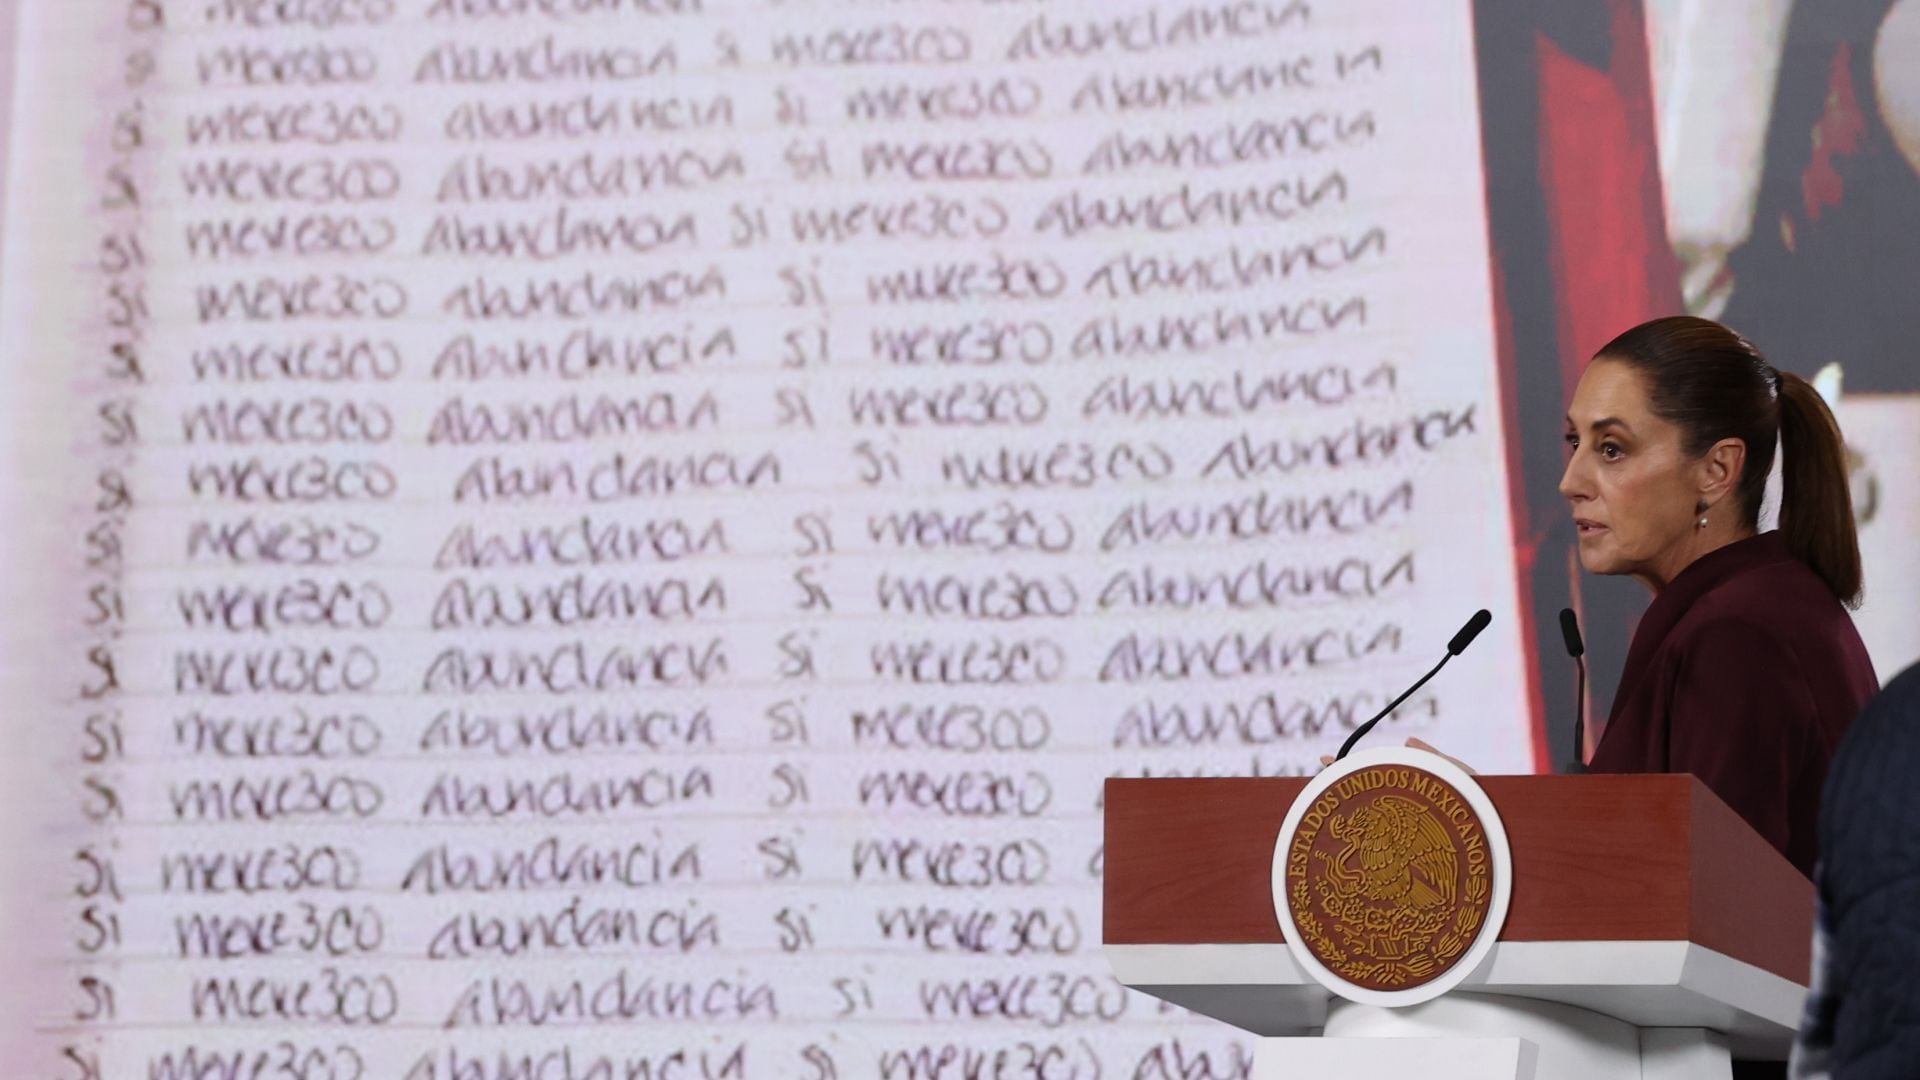 merezco abundancia
Si merezco abundancia Si merezco abundancia
Si merezco abundancia Si merezco abundancia
Si merezco abundancia Si merezco abundancia
Si merezco abundancia Si merezco abundancia
Si merezco abundancia Si merezco abundancia
Si merezco abundancia Si merezco abundancia
Si merezco abundancia Si merezco abundancia
Si merezco abundancia Si merezco abundancia
Si merezco abundancia Si merezco abundancia
Si merezco abundancia Si merezco abundancia
Si merezco abundancia Si merezco abundancia
Si merezco abundancia Si merezco abundancia
Si merezco abundancia Si merezco
Si merezco abundancia Si merezco
Si merezco abundancia Si merezco
Si merezco abundancia Si merezco
Si merezco abundancia Si merezco abun
ESTADOS UNIDOS MEXICANOS